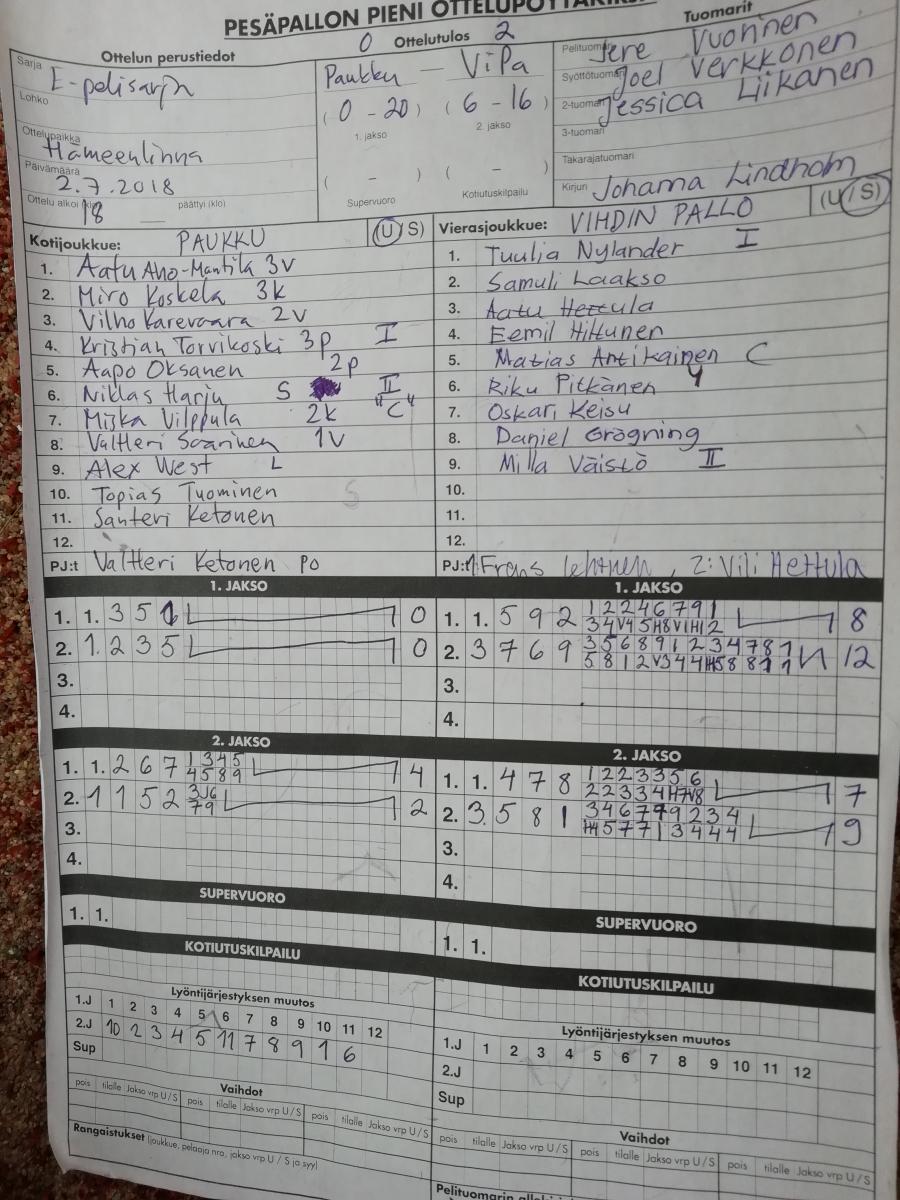 PESÄPALLON PIENI
Ottelun perustiedot
Sarja E-polisarja
Lohko
Ottelupaikka Hämeenlinna
Päivämäärä 2.7.2018
Ottelu alkoi 18 päättyi (klo)
0 Ottelutulos 2
Paukku – ViPa
(0 – 20) (6 – 16)
1. jakso 2. jakso
( – ) ( – )
Supervuoro Kotiutuskilpailu
Tuomarit
Pelituomari Jere Vuorinen
Syöttötuomari Joel Verkkonen
2-tuomari Jessica Liikanen
3-tuomari
Takarajatuomari
Kirjuri Johanna Lindholm
Kotijoukkue: PAUKKU (U/S)
1. Aatu Aho-Mantila 3v
2. Miro Koskela 3k
3. Vilho Karevaara 2v
4. Kristian Torvikoski 3p I
5. Aapo Oksanen 2p
6. Niklas Harju S II
7. Miska Vilppula 2k "C"
8. Valtteri Saarinen 1v
9. Alex West L
10. Topias Tuominen S
11. Santeri Ketonen
12.
PJ:t Valtteri Ketonen PO
Vierasjoukkue: VIHDIN PALLO (U/S)
1. Tuulia Nylander I
2. Samuli Laakso
3. Aatu Hettula
4. Eemil Hiltunen
5. Matias Antikainen C
6. Riku Pitkänen
7. Oskari Keisu
8. Daniel Grögning
9. Milla Väistö II
10.
11.
12.
PJ:t 1: Frans Lehtinen, 2: Vili Hettula
1. JAKSO
1. 1. 3 5 6 0
2. 1. 2 3 5 0
3.
4.
1. JAKSO
1. 1. 5 9 2 1 2 2 4 6 7 9 1 8
3 4 V4 5 H8 V1 H1 2
2. 3 7 6 9 3 5 6 8 9 1 2 3 4 7 8 1 12
5 8 1 2 V3 4 4 H5 8 8 1 1
3.
4.
2. JAKSO
1. 1. 2 6 7 1 3 4 5 4
4 5 8 9
2. 1 1 5 2 2
7 9
3.
4.
2. JAKSO
1. 1. 4 7 8 1 2 2 3 3 5 6 7
2 2 3 3 4 H7 V8
2. 3. 5 8 1 3 4 6 7 7 9 2 3 4 9
H4 5 7 7 1 3 4 4 4
3.
4.
SUPERVUORO
1. 1.
SUPERVUORO
1. 1.
KOTIUTUSKILPAILU
KOTIUTUSKILPAILU
Lyöntijärjestyksen muutos
1.J 1 2 3 4 5 6 7 8 9 10 11 12
2.J 10 2 3 4 5 11 7 8 9 1 6
Sup
Lyöntijärjestyksen muutos
1.J 1 2 3 4 5 6 7 8 9 10 11 12
2.J
Sup
Vaihdot
pois tilalle Jakso vrp U/S pois tilalle Jakso vrp U/S pois tilalle Jakso vrp U/S
Rangaistukset (joukkue, pelaaja nro, jakso vrp U / S ja syy)
Vaihdot
pois tilalle Jakso vrp U/S pois tilalle Jakso vrp U/S pois tilalle Jakso vrp U/S